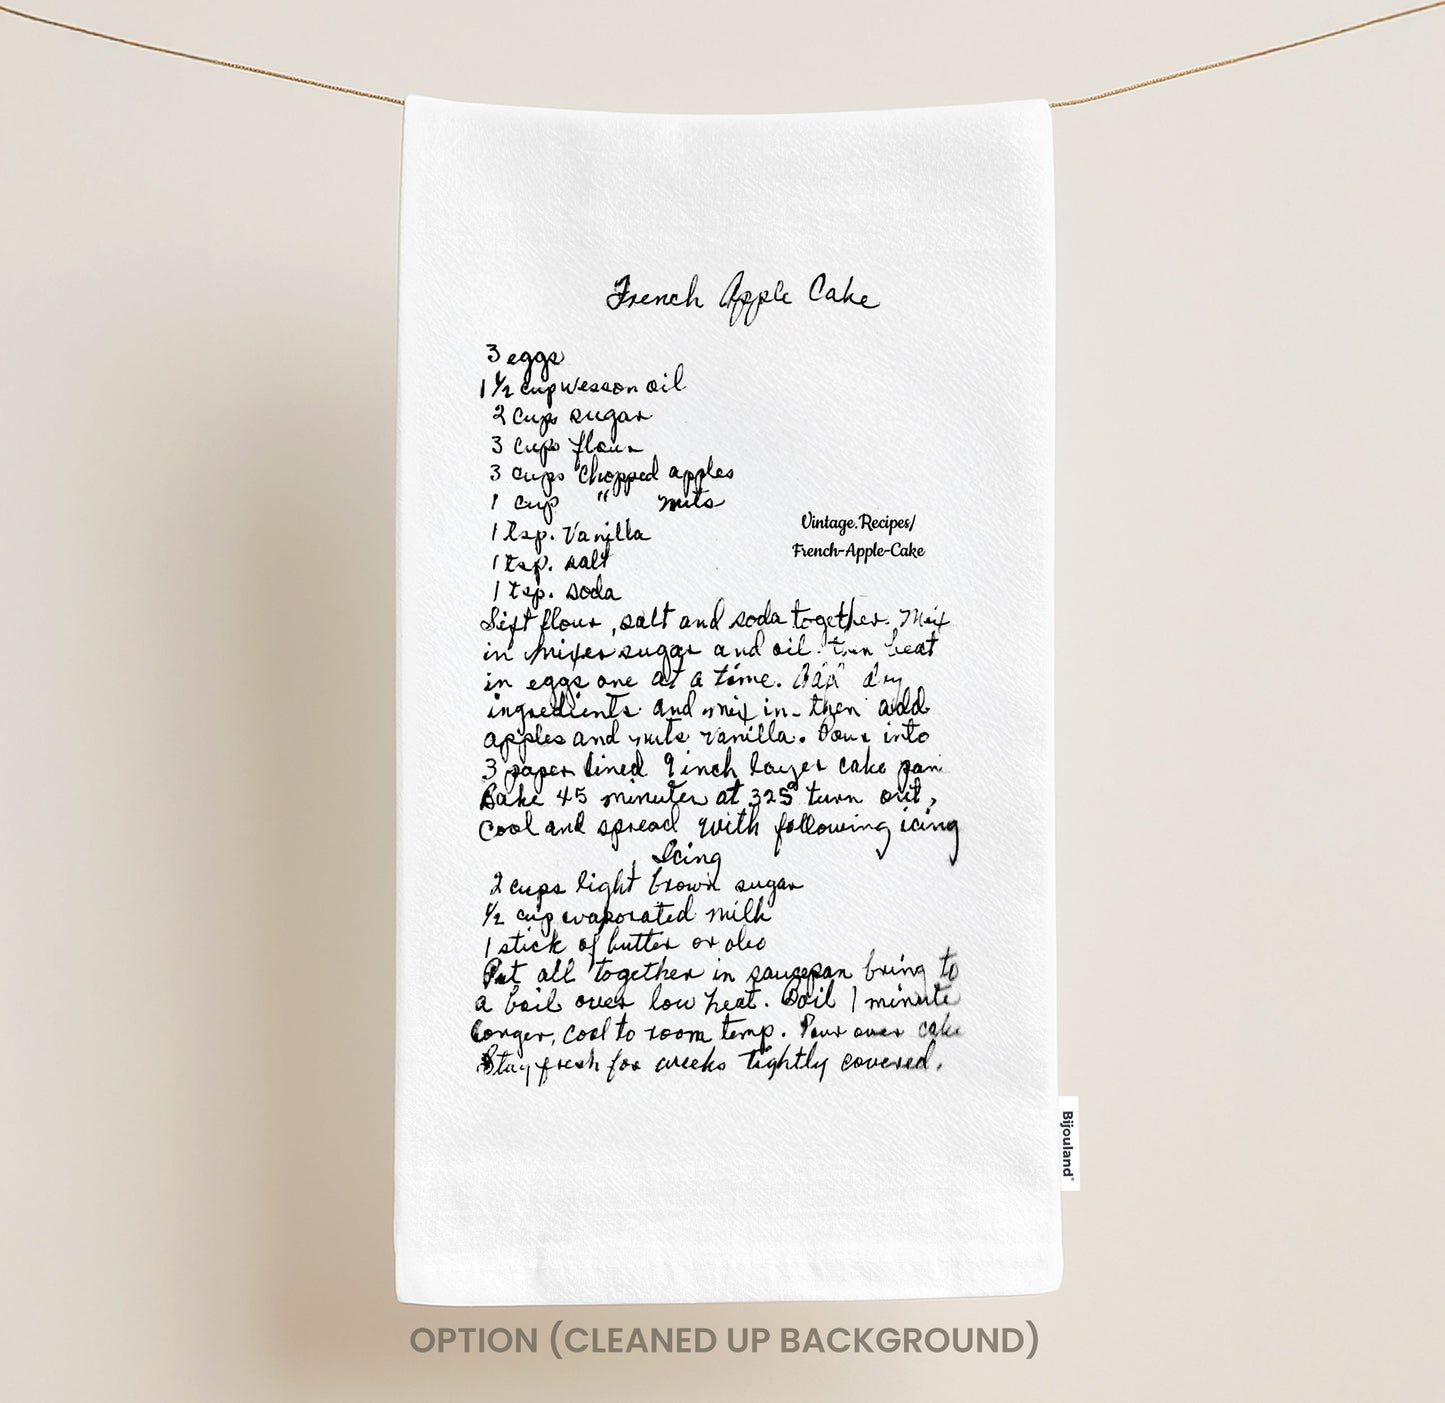 French Apple Cake
3 eggs
1 1/2 cup Wesson oil
2 cups sugar
3 cups flour
3 cups chopped apples
1 cup " nuts
1 tsp. Vanilla
1 tsp. salt
1 tsp. soda
Vintage.Recipes/
French-Apple-Cake
Sift flour, salt and soda together. Mix
in mixer sugar and oil. then beat
in eggs one at a time. Add dry
ingredients and mix in - then add
apples and nuts vanilla. Pour into
3 paper lined 9 inch layer cake pan
Bake 45 minutes at 325° turn out,
Cool and spread with following icing
Icing
2 cups light brown sugar
1/2 cup evaporated milk
1 stick of butter or oleo
Put all together in saucepan bring to
a boil over low heat. Boil 1 minute
longer, cool to room temp. Pour over cake
Stay fresh for weeks tightly covered.
Bijouland
OPTION (CLEANED UP BACKGROUND)